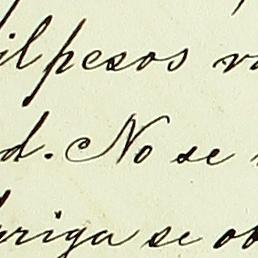 il pesos
d. No se
riga se ob